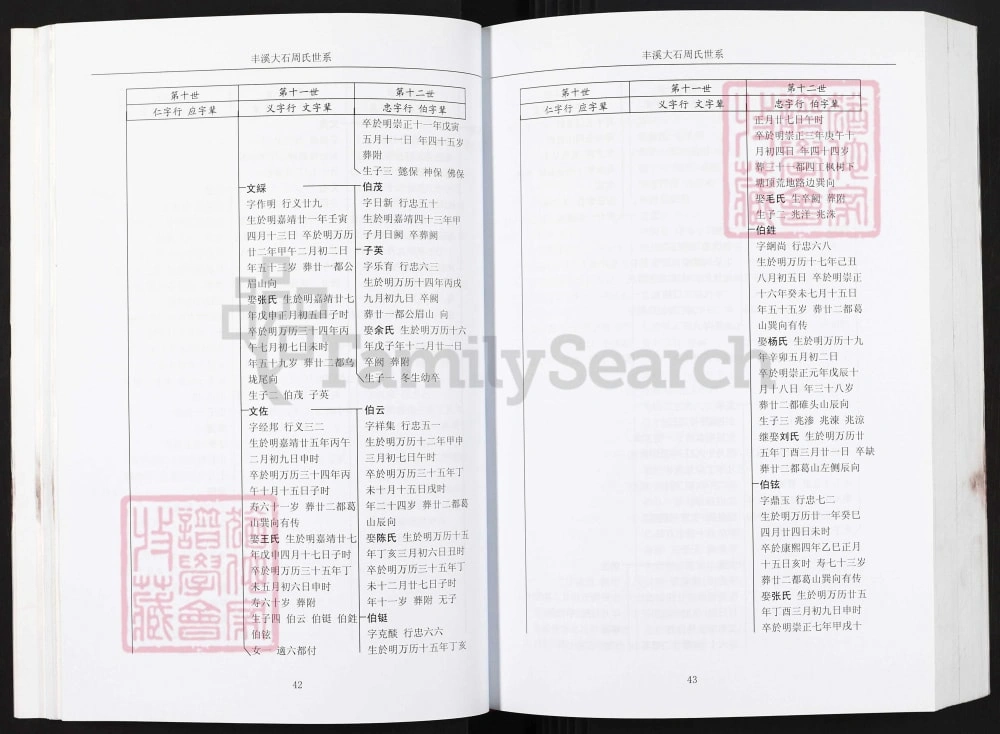 丰溪大石周氏世系
第十世
第十一世
第十二世
仁字行 应字辈
义字行 文字辈
忠字行 伯字辈
文綵
字作明 行义廿九
生於明嘉靖廿一年壬寅
四月十三日 卒於明万历
廿二年甲午二月初二日
年五十三岁 葬廿一都公
眉山向
娶张氏 生於明嘉靖廿七
年戊申正月初五日子时
卒於明万历三十四年丙
午七月初七日未时
年五十九岁 葬廿二都乌
垅尾向
生子二 伯茂 子英
文佐
字经邦 行义三二
生於明嘉靖廿五年丙午
二月初九日申时
卒於明万历三十四年丙
午十月十五日子时
寿六十一岁 葬廿二都葛
山巽向有传
娶王氏 生於明嘉靖廿七
年戊申四月十七日子时
卒於明万历三十五年丁
未五月初六日申时
寿六十岁 葬附
生子四 伯云 伯铤 伯鉎
伯铉
女 適六都付
卒於明崇正十一年戊寅
五月十一日 年四十五岁
葬附
生子三 懿保 神保 佛保
伯茂
字日新 行忠五十
生於明嘉靖四十三年甲
子月日阙 卒葬阙
子英
字乐育 行忠六三
生於明万历十四年丙戌
九月初九日 卒阙
葬廿一都公眉山 向
娶余氏 生於明万历十六
年戊子年十二月廿一日
卒阙 葬附
生子一 冬生幼卒
伯云
字祥集 行忠五一
生於明万历十二年甲申
三月初七日午时
卒於明万历三十五年丁
未十月十五日戌时
年二十四岁 葬廿二都葛
山辰向
娶陈氏 生於明万历十五
年丁亥三月初六日丑时
卒於明万历三十五年丁
未十二月廿七日子时
年十一岁 葬附 无子
伯铤
字克醱 行忠六六
生於明万历十五年丁亥
42
丰溪大石周氏世系
第十世
第十一世
第十二世
仁字行 应字辈
义字行 文字辈
忠字行 伯字辈
正月廿七日午时
卒於明崇正三年庚午十
月初四日 年四十四岁
葬二十一都四工枫树下
塘顶荒地路边巽向
娶毛氏 生卒阙 葬附
生子二 兆洋 兆洙
伯鉎
字綗尚 行忠六八
生於明万历十七年己丑
八月初五日 卒於明崇正
十六年癸未七月十五日
年五十五岁 葬廿二都葛
山巽向有传
娶杨氏 生於明万历十九
年辛卯五月初二日
卒於明崇正元年戊辰十
月十八日 年三十八岁
葬廿二都碓头山辰向
生子三 兆渗 兆涑 兆涼
继娶刘氏 生於明万历廿
五年丁酉三月廿一日 卒缺
葬廿二都葛山左侧辰向
伯铉
字鼎玉 行忠七二
生於明万历廿一年癸巳
四月廿四日未时
卒於康熙四年乙巳正月
十五日亥时 寿七十三岁
葬廿二都葛山巽向有传
娶张氏 生於明万历廿五
年丁酉三月初九日申时
卒於明崇正七年甲戌十
43
FamilySearch